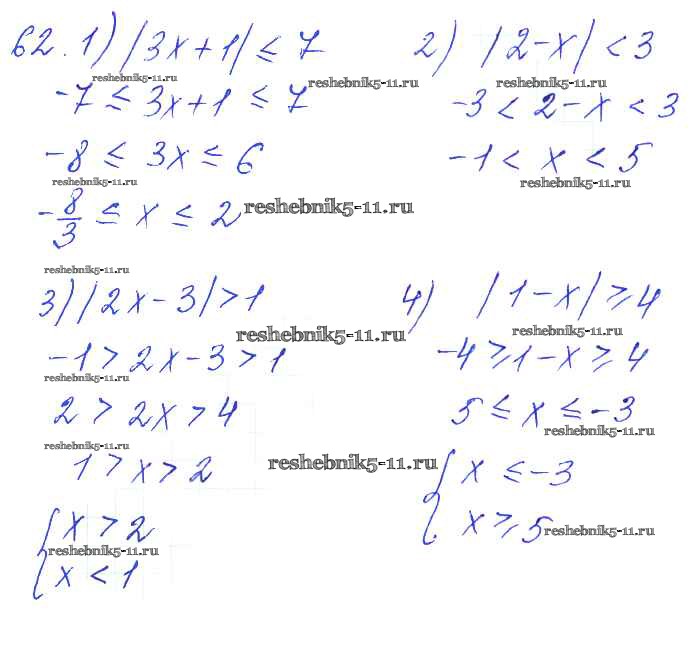 62. 1) |3x+1| ≤ 7
reshebnik5-11.ru
-7 ≤ 3x+1 ≤ 7
-8 ≤ 3x ≤ 6
reshebnik5-11.ru
-8/3 ≤ x ≤ 2
reshebnik5-11.ru
2) |2-x| < 3
reshebnik5-11.ru
reshebnik5-11.ru
-3 < 2-x < 3
-1 < x < 5
reshebnik5-11.ru
reshebnik5-11.ru
3) |2x-3| > 1
reshebnik5-11.ru
-1 > 2x-3 > 1
reshebnik5-11.ru
2 > 2x > 4
reshebnik5-11.ru
1 > x > 2
reshebnik5-11.ru
{ x > 2
reshebnik5-11.ru
x < 1
4) |1-x| ≥ 4
reshebnik5-11.ru
-4 ≥ 1-x ≥ 4
5 ≤ x ≤ -3
reshebnik5-11.ru
{ x ≤ -3
x ≥ 5
reshebnik5-11.ru